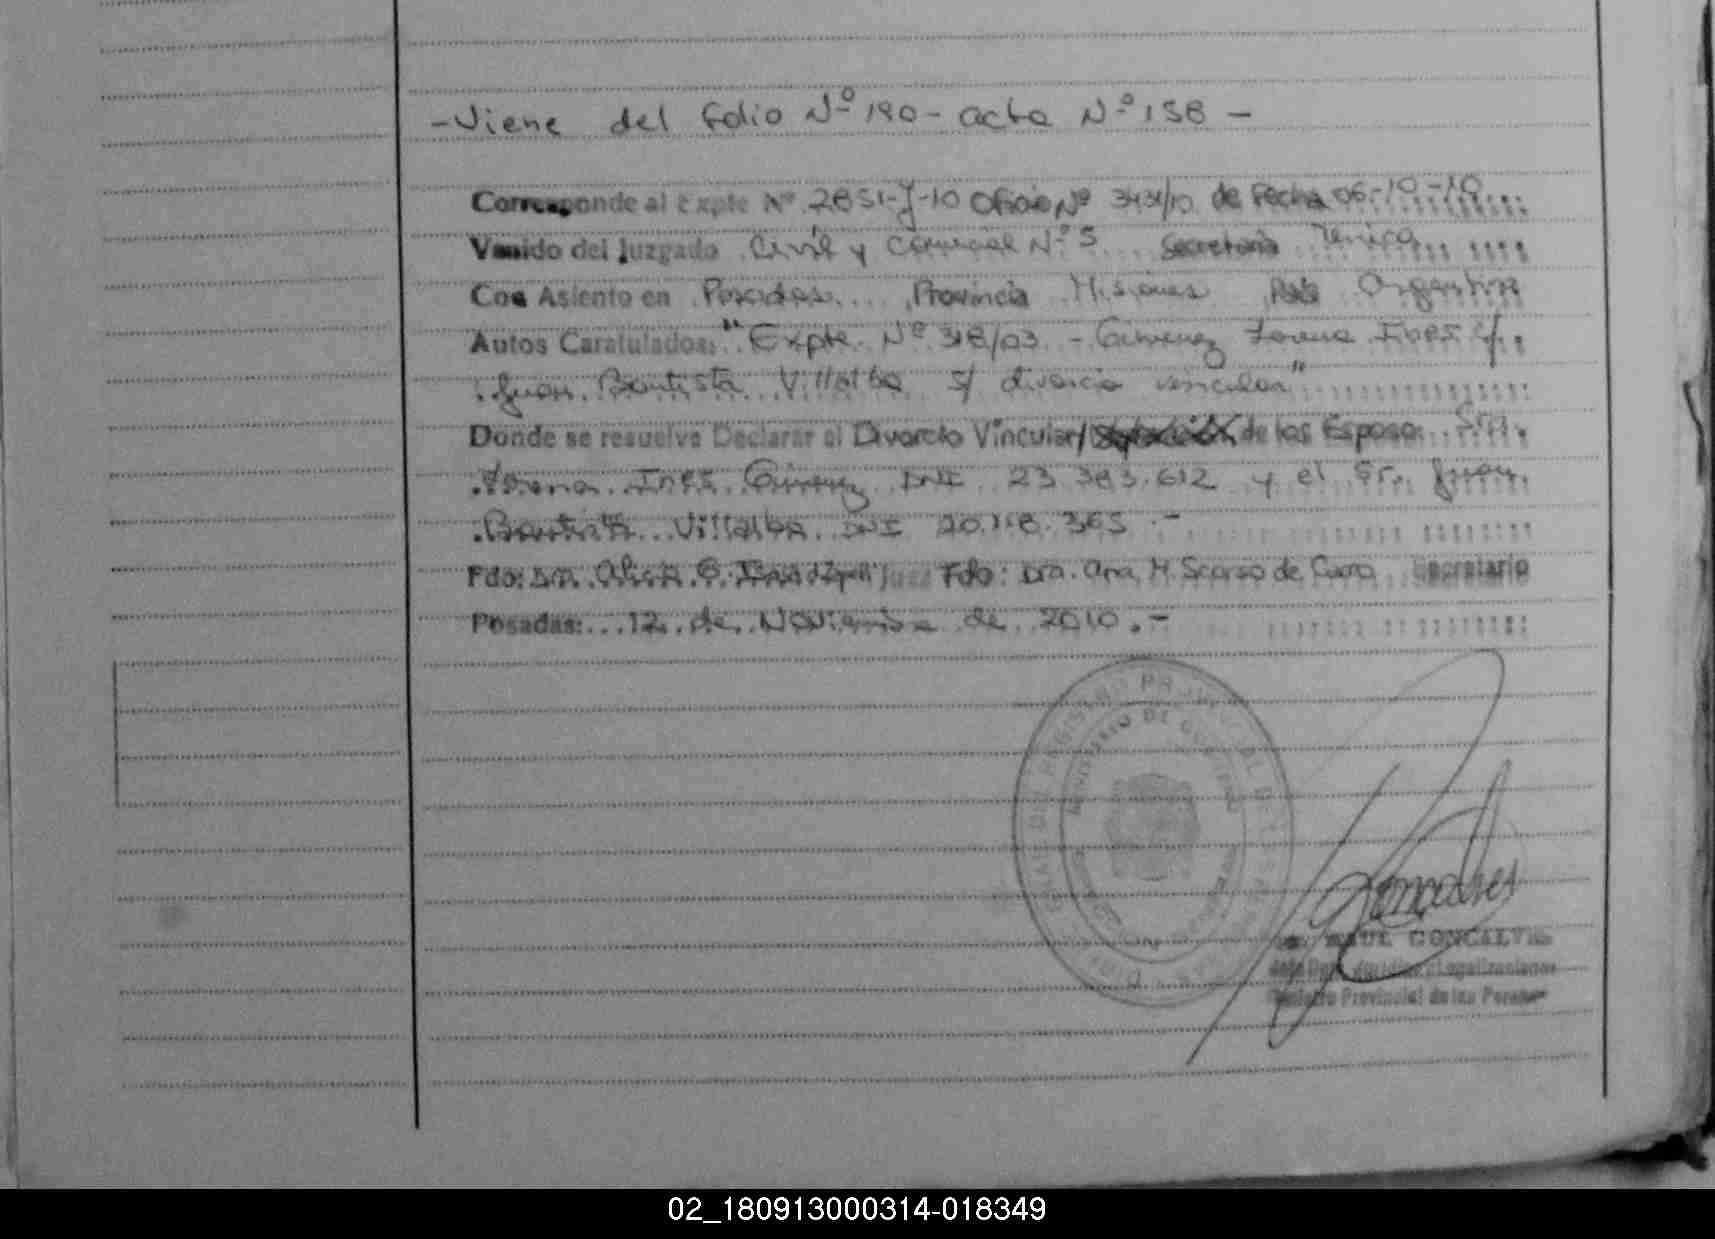 - Viene del folio Nº 190 - acta Nº 158 -
Corresponde al Expte Nº 2851-J-10 Oficio Nº 3431/10 de Fecha 06-10-10
Venido del Juzgado Civil y Comercial Nº 5 Secretaria
Con Asiento en Posadas Provincia Misiones
Autos Caratulados: "Expte. Nº 318/03 - Gimenez Lorena Ines c/
Juan Bautista Villalba s/ divorcio vincular"
Donde se resuelve Declarar el Divorcio Vincular/ de los Esposos Sra.
Lorena Ines Gimenez DNI 23.383.612 y el Sr. Juan
Bautista Villalba DNI 20.118.365 .-
Fdo: Dra. Alicia Juez Fdo: Dra. Ana M. Scarso de Secretario
Posadas: 12 de Noviembre de 2010.-
REGISTRO PROVINCIAL DE LAS PERSONAS
MINISTERIO DE GOBIERNO
RAUL GONCALVES
Legalizaciones
Registro Provincial de las Personas
02_180913000314-018349